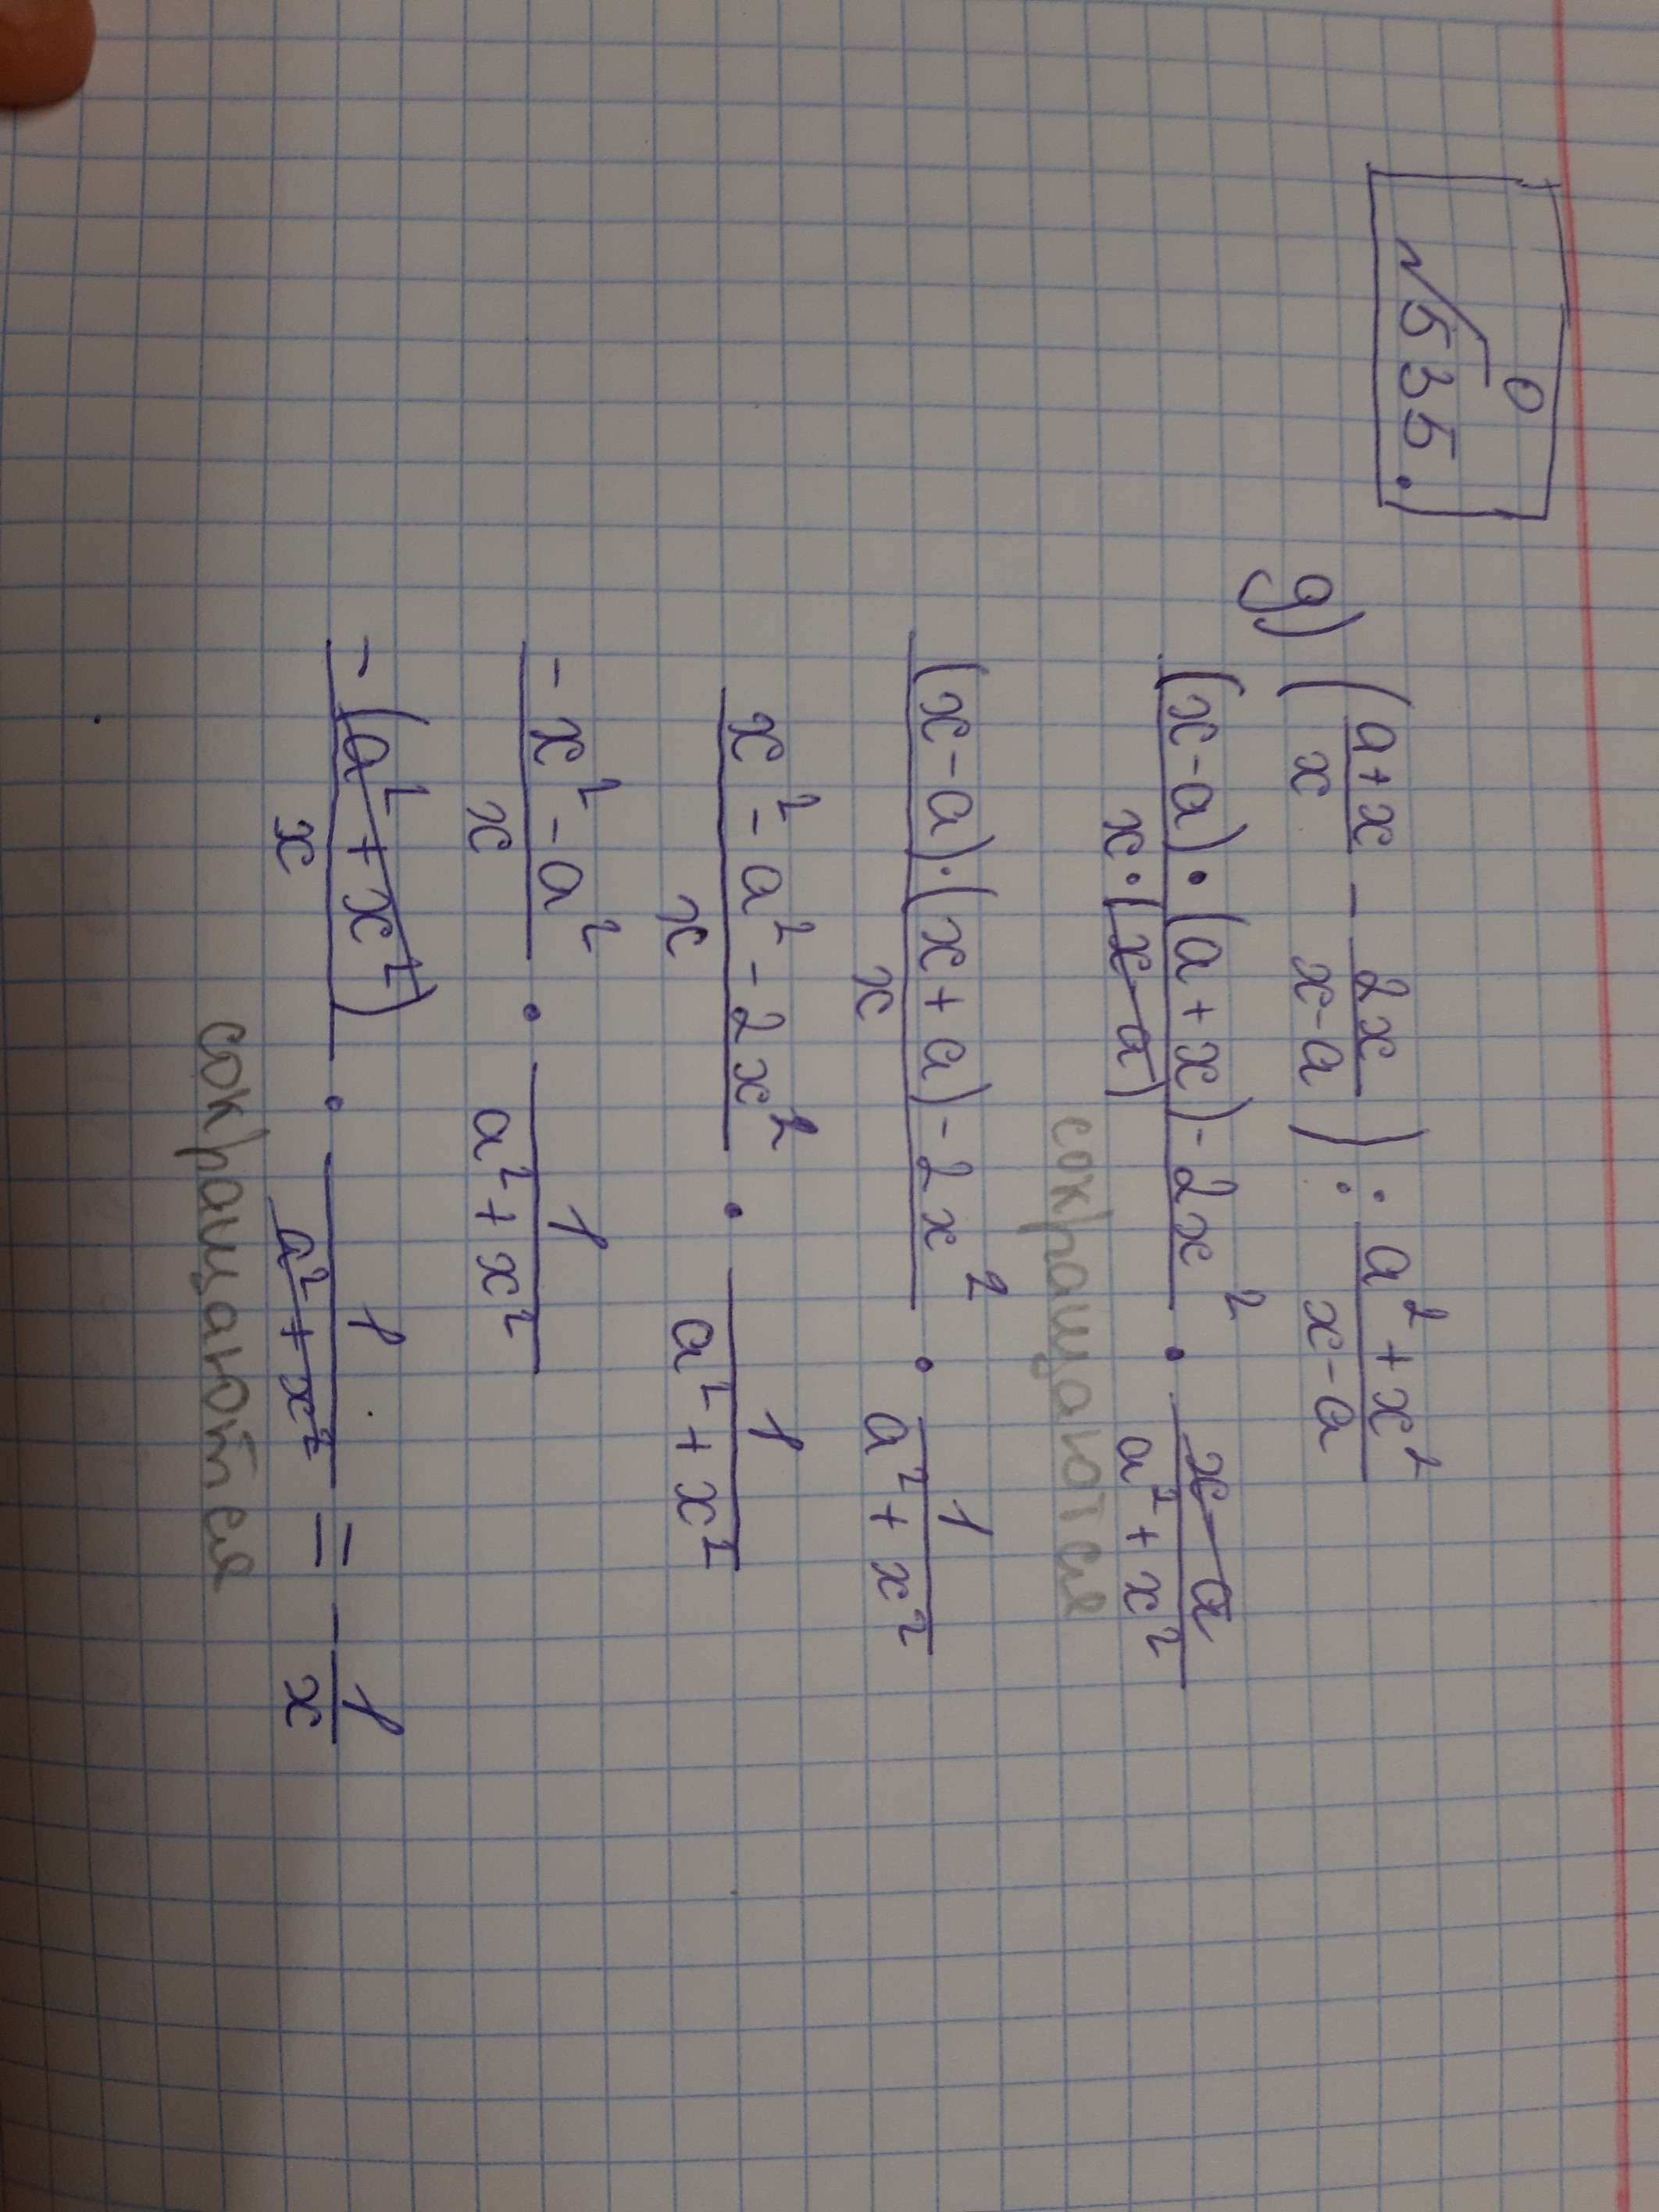 №535.
д) ((a+x)/x - 2x/(x-a)) : (a²+x²)/(x-a)
((x-a)·(a+x)-2x²)/(x·(x-a)) · (x-a)/(a²+x²)
сокращаются
((x-a)·(x+a)-2x²)/x · 1/(a²+x²)
(x²-a²-2x²)/x · 1/(a²+x²)
(-x²-a²)/x · 1/(a²+x²)
(-(a²+x²))/x · 1/(a²+x²) = - 1/x
сокращаются